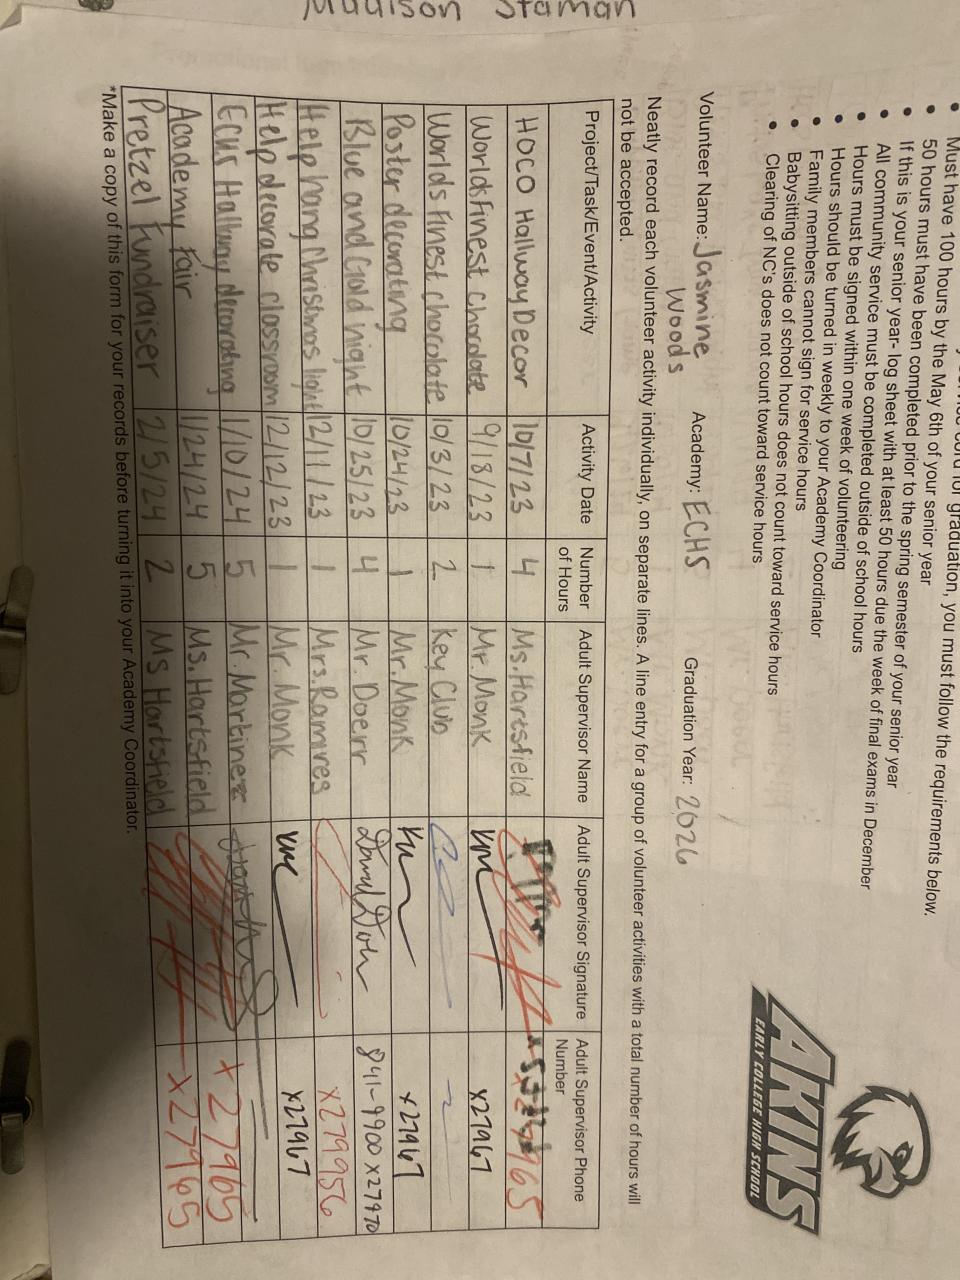 Madison Staman
graduation, you must follow the requirements below.
Must have 100 hours by the May 6th of your senior year
50 hours must have been completed prior to the spring semester of your senior year
If this is your senior year- log sheet with at least 50 hours due the week of final exams in December
All community service must be completed outside of school hours
Hours must be signed within one week of volunteering
Hours should be turned in weekly to your Academy Coordinator
Family members cannot sign for service hours
Babysitting outside of school hours does not count toward service hours
Clearing of NC's does not count toward service hours
AKINS
EARLY COLLEGE HIGH SCHOOL
Volunteer Name: Jasmine Woods Academy: ECHS Graduation Year: 2026
Neatly record each volunteer activity individually, on separate lines. A line entry for a group of volunteer activities with a total number of hours will
not be accepted.
Project/Task/Event/Activity Activity Date Number of Hours Adult Supervisor Name Adult Supervisor Signature Adult Supervisor Phone Number
HOCO Hallway Decor 10/7/23 4 Ms. Hartsfield
Worlds Finest Chocolate 9/18/23 1 Mr. Monk x27967
Worlds Finest chocolate 10/3/23 2 Key Club
Poster decorating 10/24/23 1 Mr. Monk x27967
Blue and Gold night 10/25/23 4 Mr. Doerr 841-9900 x27970
Help hang Christmas light 12/11/23 1 Mrs. Ramires x279956
Help decorate classroom 12/12/23 1 Mr. Monk x27967
ECHS Hallway decorating 1/10/24 5 Mr. Martinez
Academy Fair 1/24/24 5 Ms. Hartsfield x27965
Pretzel Fundraiser 2/5/24 2 Ms Hartsfield x27965
*Make a copy of this form for your records before turning it into your Academy Coordinator.